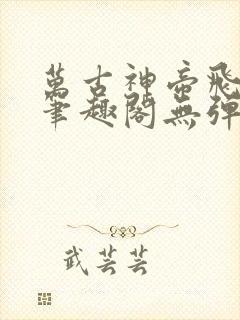 萬古神帝飛
筆趣閣無彈
武芸芸